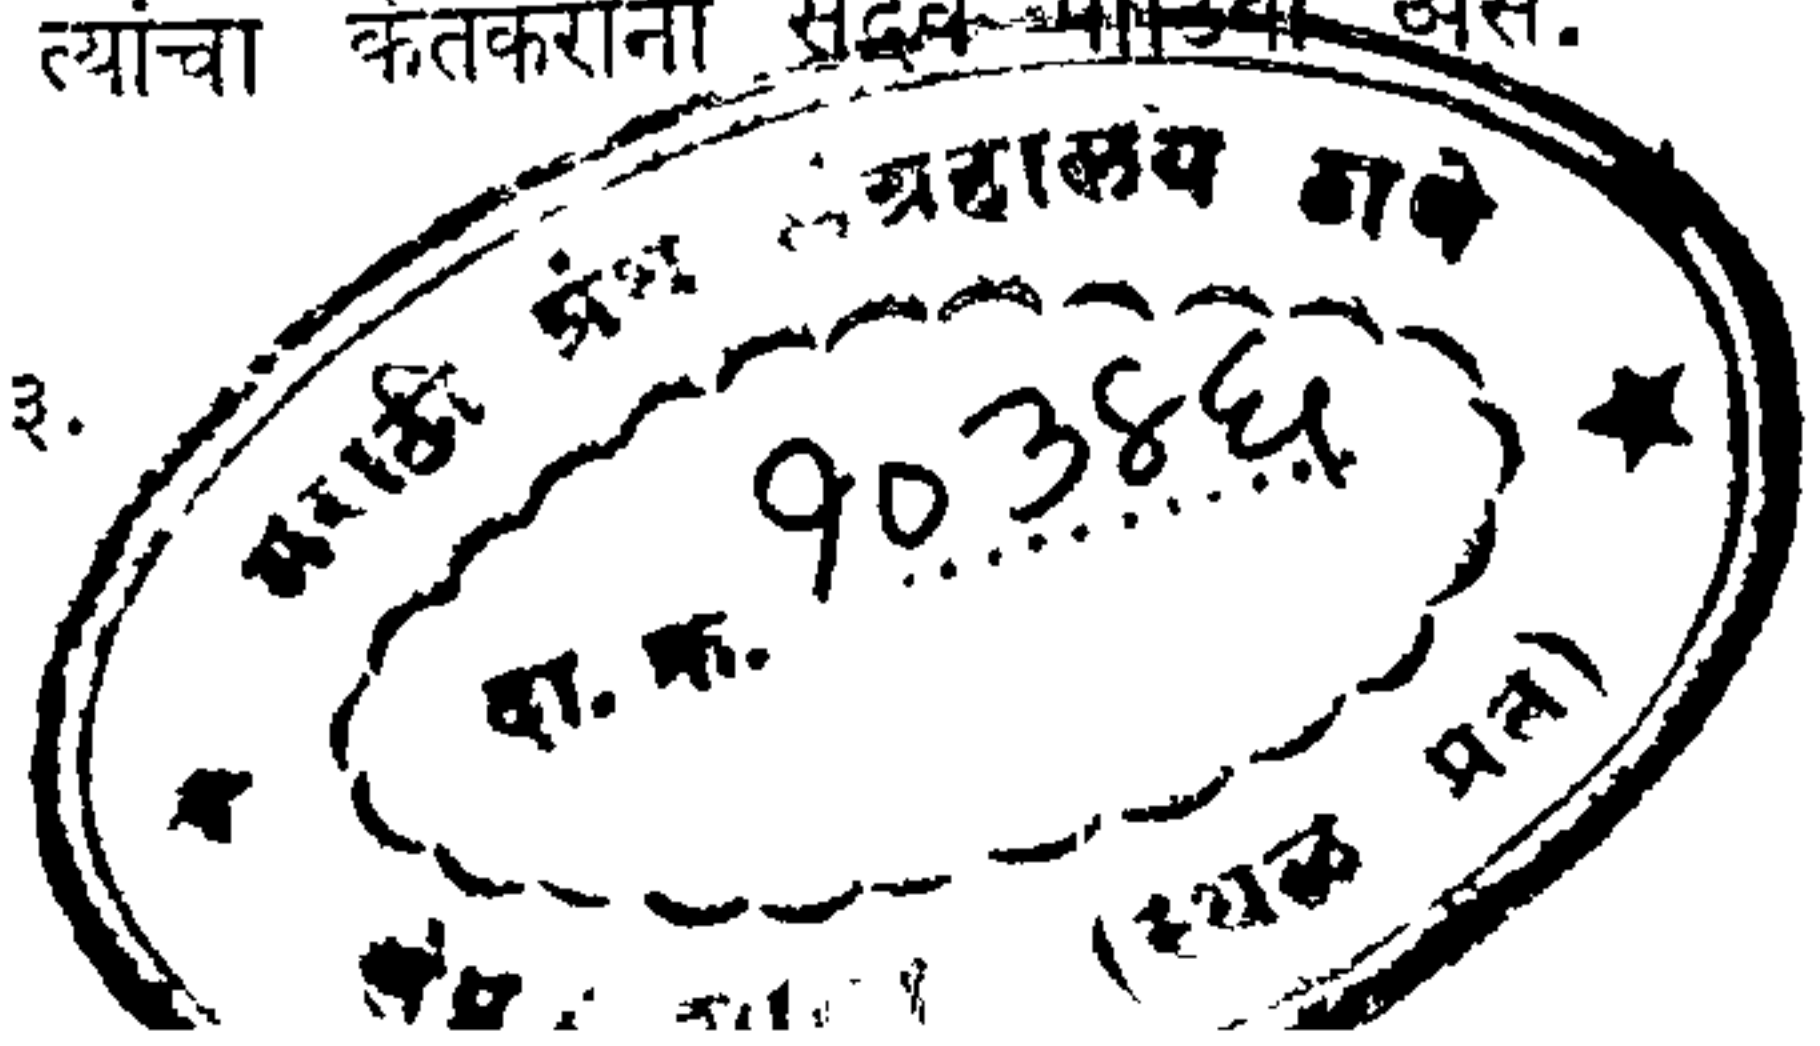 त्यांचा केतकरांना सदैव पाठिंबा असे.
३.
मराठी ग्रंथ संग्रहालय ठाणे
दा. क्र. १०३४६५
(स्थळ प्रत)